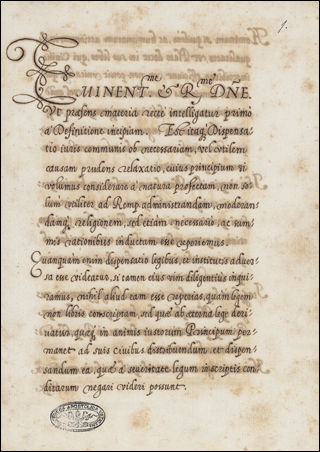 1.
EMINENT.me & R.me DÑE.
Vt præsens materia recte intelligatur primò
à Definitione incipiam. Est itaq. Dispensa-
tio iuris communis ob necessariam, vel vtilem
causam prudens relaxatio, cuius principium si
volumus considerare à natura profectam, non so-
lum vtiliter ad Remp. administrandam, moderan-
damq. religionem, sed etiam necessario, ac sum-
mis rationibus inductam esse reperiemus.
Quanquam enim dispensatio legibus, et institutis aduer-
sa esse videatur, si tamen eius vim diligentius inqui-
ramus, nihil aliud eam esse reperias, quam legem
non libris conscriptam, sed quæ ab æterna lege deri-
uatur, quæq. in animis iustorum Principum per-
manet ad suis ciuibus distribuendum et dispen-
sandum ea, quæ à seueritate legum inscriptis con-
ditarum negari videri possunt.